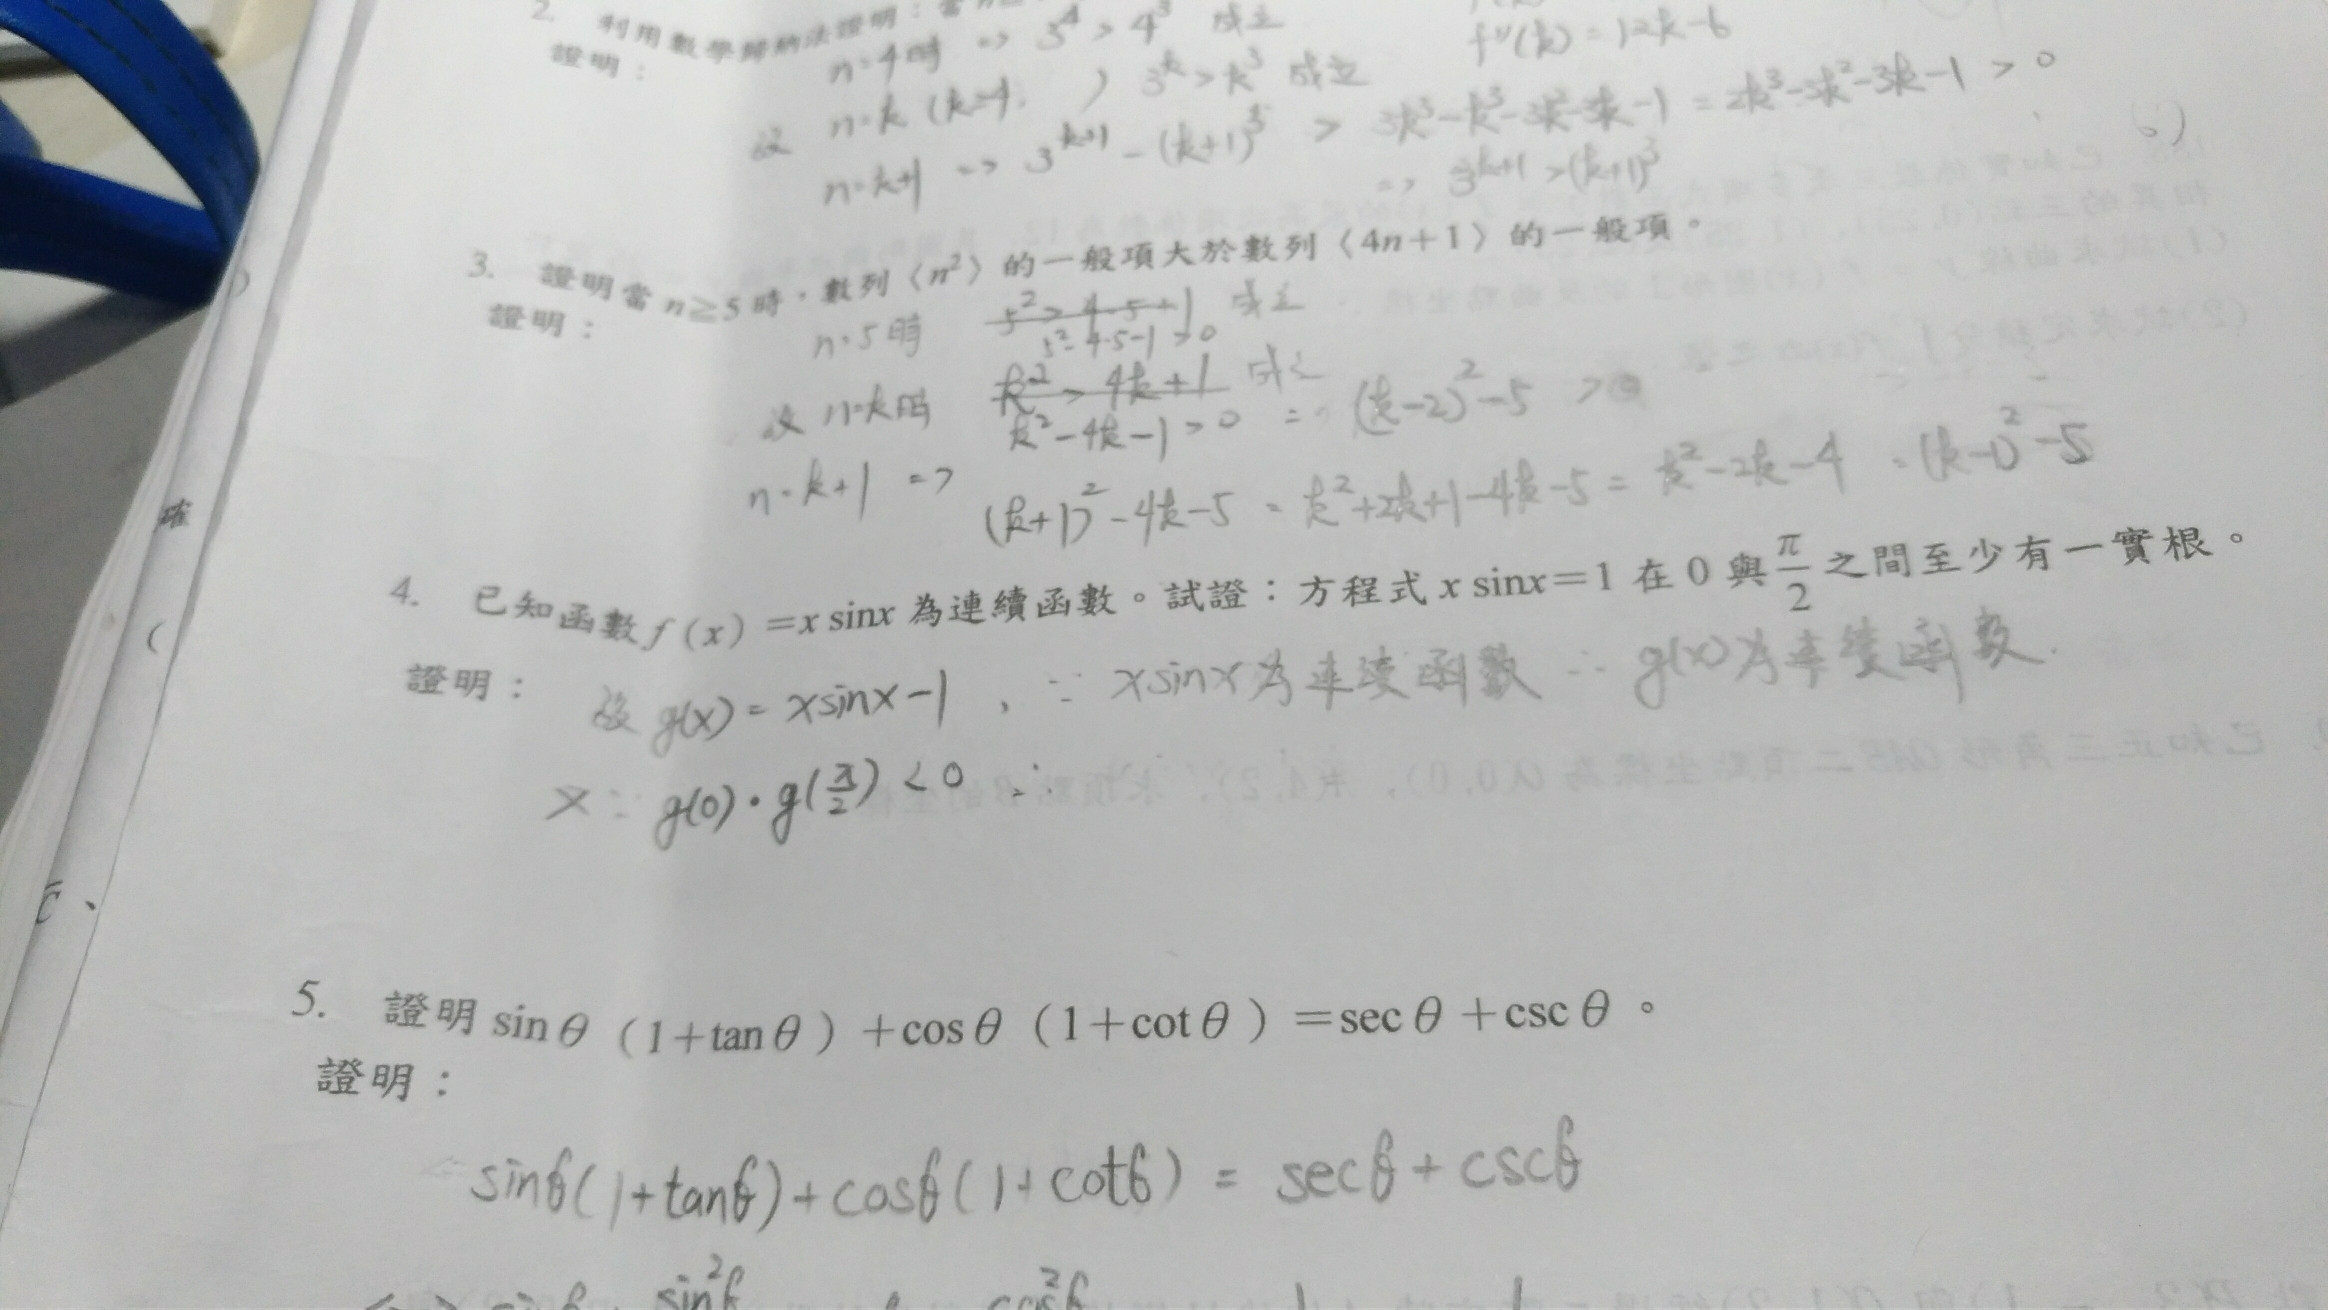 2. 利用數學歸納法證明：當
證明：
n=4時 => 3⁴ > 4³ 成立
設 n=k (k≥4, ) 3ᵏ > k³ 成立
f''(k) = 12k-6
n=k+1 => 3ᵏ⁺¹ - (k+1)³ > 3k³-k³-3k²-3k-1 = 2k³-3k²-3k-1 > 0
=> 3ᵏ⁺¹ > (k+1)³
3. 證明當 n≧5 時，數列〈n²〉的一般項大於數列〈4n+1〉的一般項。
證明：
n=5時 5² > 4·5+1 成立
5²-4·5-1 > 0
設 n=k時 k² > 4k+1 成立
k²-4k-1 > 0 = (k-2)²-5 > 0
n=k+1 => (k+1)²-4k-5 = k²+2k+1-4k-5 = k²-2k-4 = (k-1)²-5
4. 已知函數 f(x)=x sinx 為連續函數。試證：方程式 x sinx=1 在 0 與 π/2 之間至少有一實根。
證明：
設 g(x) = xsinx-1 , ∵ xsinx為連續函數 ∴ g(x)為連續函數.
又∵ g(0)·g(π/2) < 0 ∴
5. 證明 sinθ（1+tanθ）+cosθ（1+cotθ）=secθ+cscθ。
證明：
sinθ(1+tanθ)+cosθ(1+cotθ) = secθ+cscθ
確
(
c̄、
6)